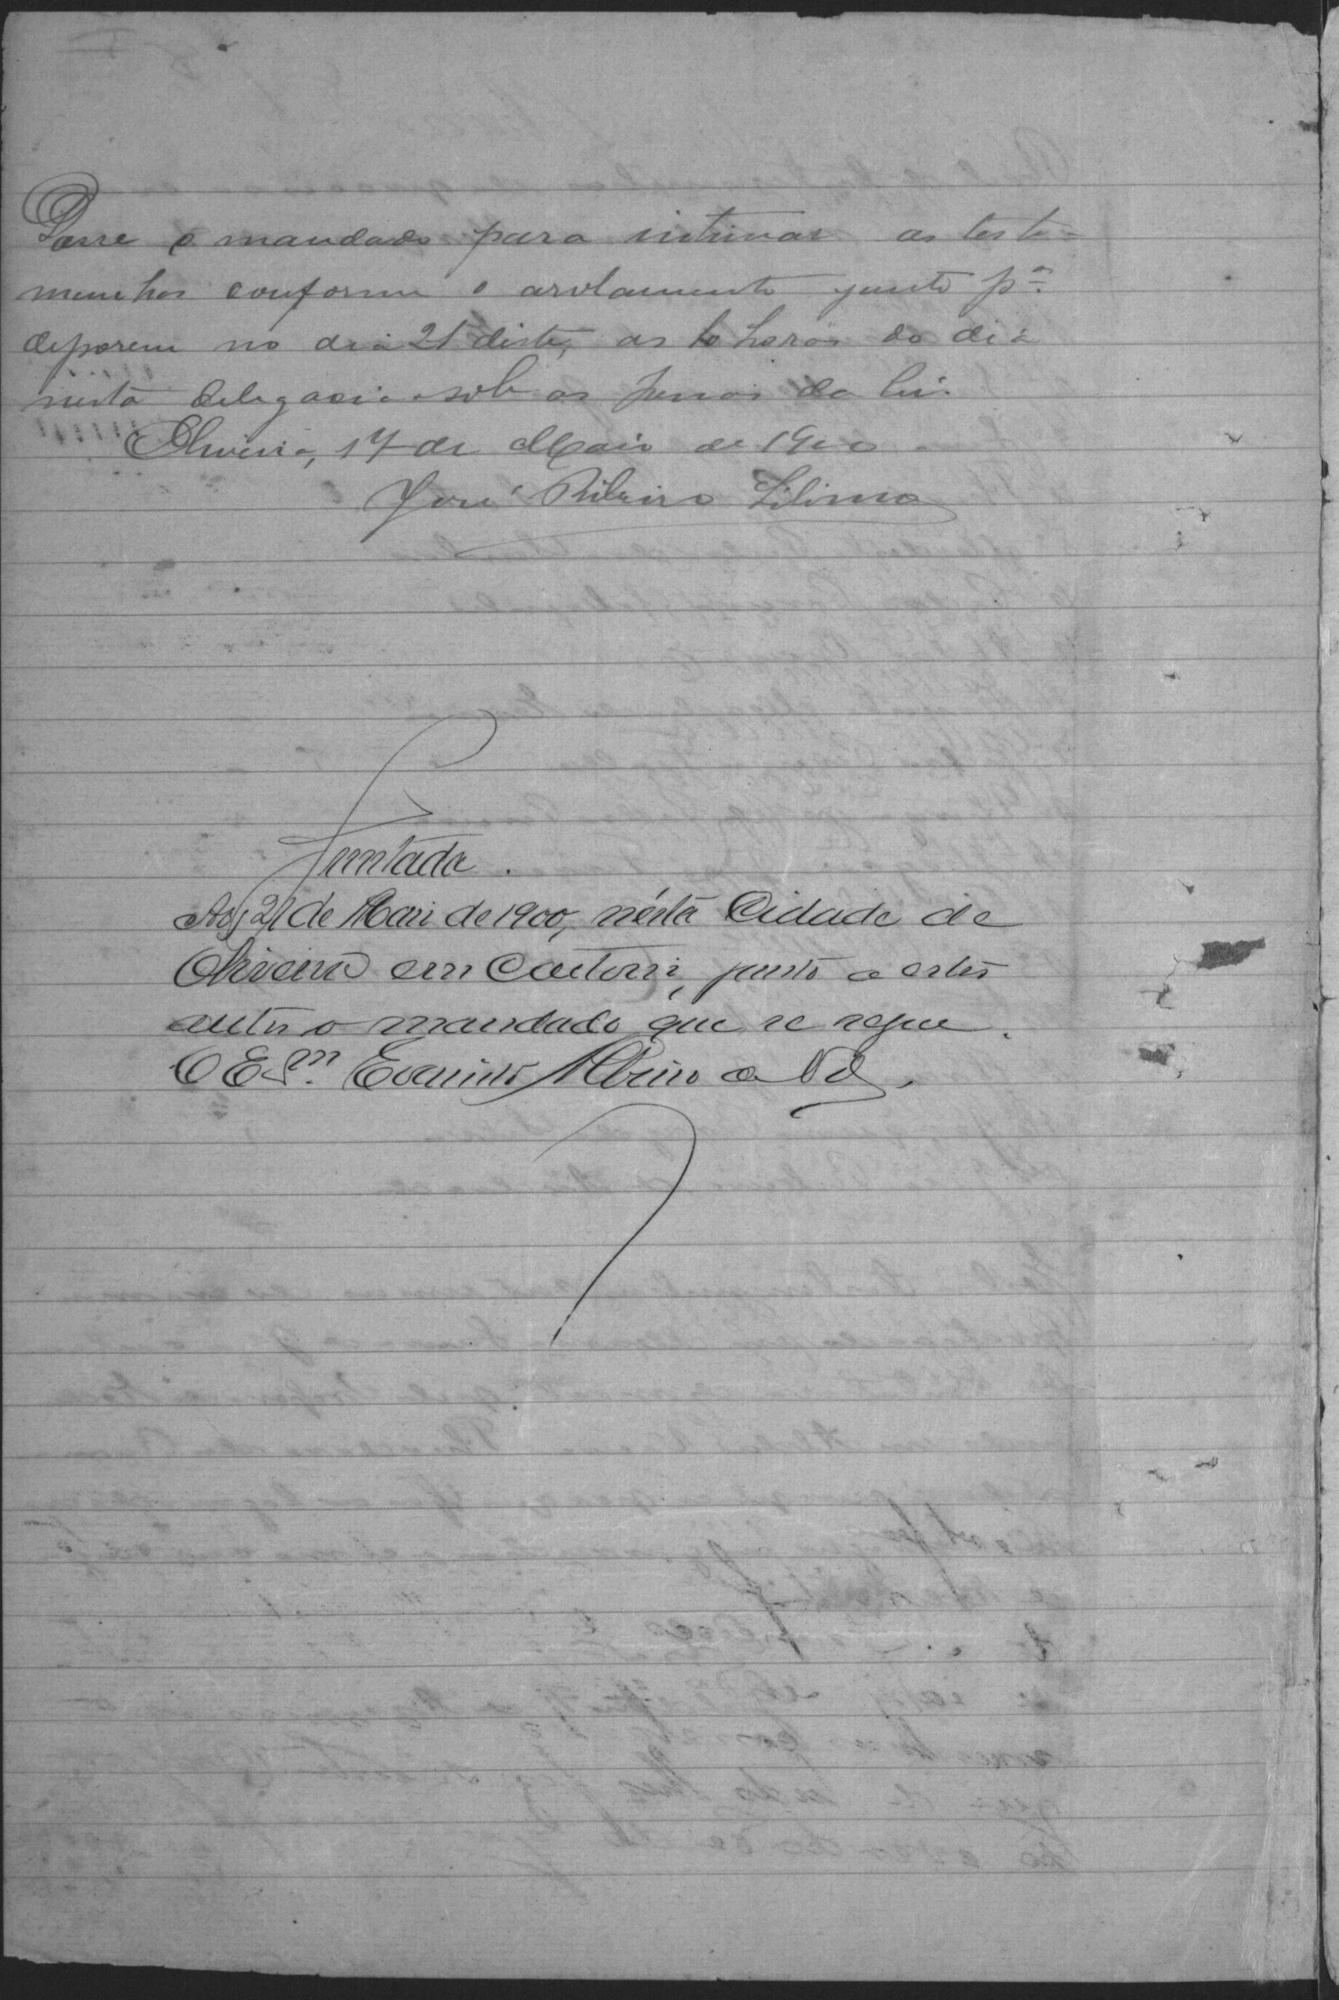 Passe o mandado para intimar as teste-
munhas conforme o arolamento junto pª.
deporem no dia 21 deste, as 10 horas do dia
nesta delegacia sob as penas da lei.
Oliveira, 17 de Maio de 1900
José Ribeiro
Juntada.
Aos 21 de Maio de 1900, nésta Cidade de
Oliveira em Cartorio, junto a estes
autos o mandado que se segue.
O Esm.